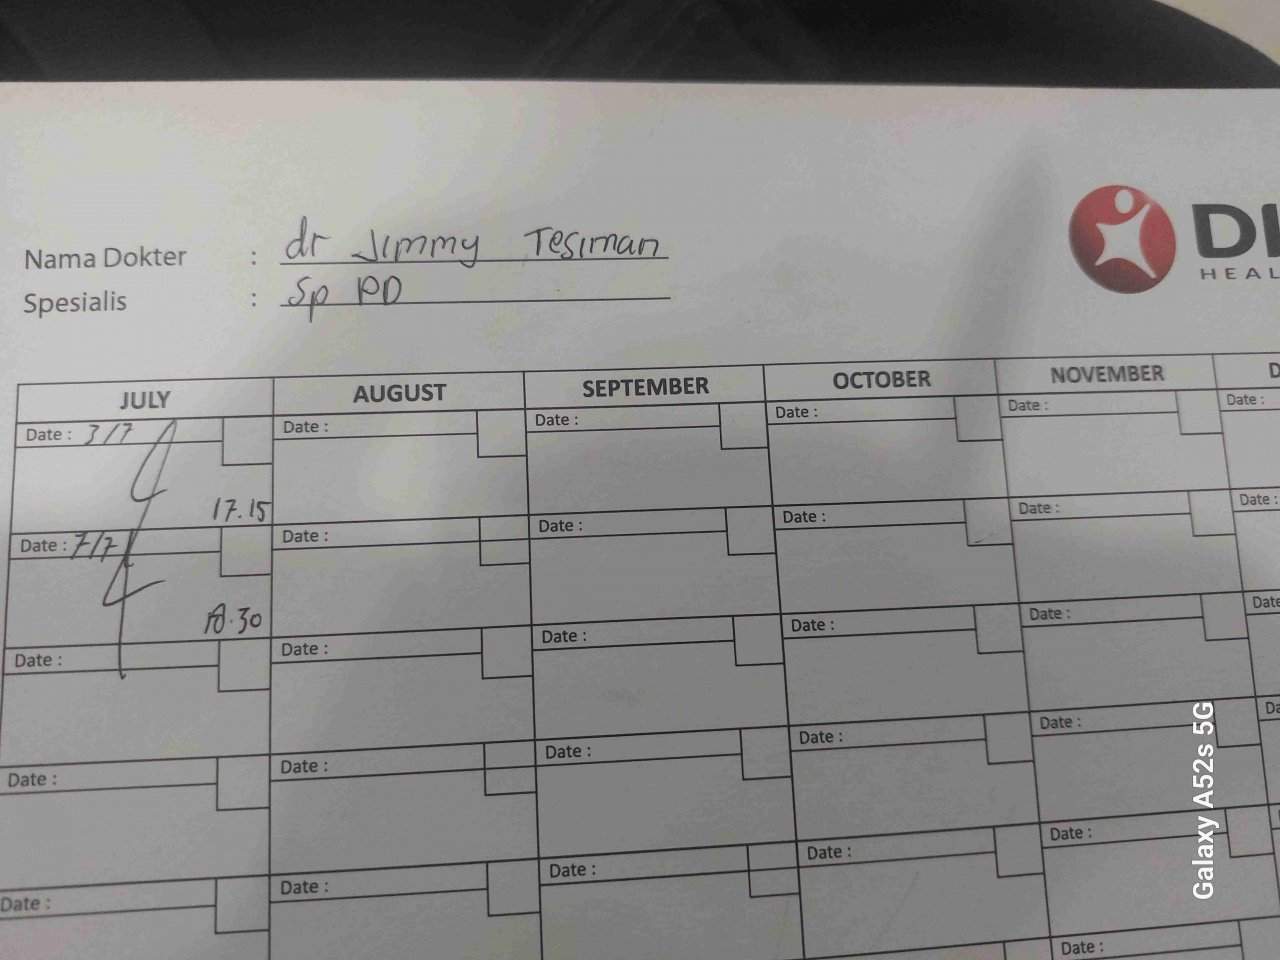 Nama Dokter : dr Jimmy Tesiman
Spesialis : Sp PD
DI
HEAL
JULY AUGUST SEPTEMBER OCTOBER NOVEMBER D
Date : 3/7 Date : Date : Date : Date : Date :
17.15
Date : 7/7 Date : Date : Date : Date : Date :
.30
Date : Date : Date : Date : Date : Date
Date : Date : Date : Date : Date : Da
Date : Date : Date : Date : Date :
Date :
Galaxy A52s 5G